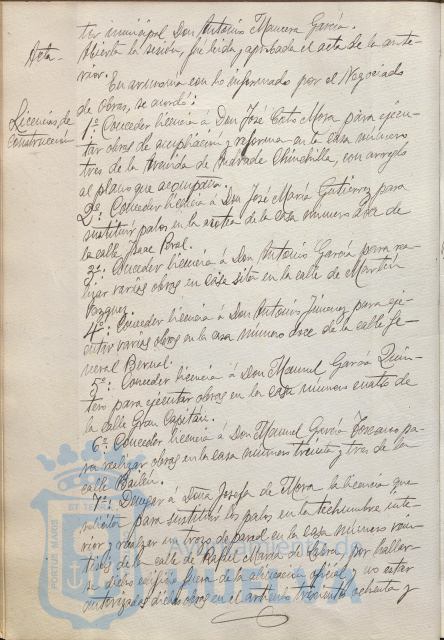 ter municipal Don Antonio Mancera García.
Acta.- Abierta la sesión, fué leida y aprobada el acta de la ante-
rior.
En armonía con lo informado por el Negociado
Licencias de construcción de Obras, se acordó:
1º. Conceder licencia á Don José Coto Mora para ejecu-
tar obras de ampliación y reforma en la casa número
tres de la Avenida de Andrade Chinchilla, con arreglo
al plano que acompaña.
2º. Conceder licencia á Don José María Gutierrez para
sustituir palos en la azotea de la casa número doce de
la calle Isaac Peral.
3º. Conceder licencia á Don Antonio García para rea-
lizar varias obras en casa sita en la calle de Martín
Vazquez.
4º. Conceder licencia á Don Antonio Jimenez para eje-
cutar varias obras en la casa número doce de la calle Ge-
neral Bernal.
5º. Conceder licencia á Don Manuel García Quin-
tero para ejecutar obras en la casa número cuatro de
la calle Gran Capitán.
6º. Conceder licencia á Don Manuel García Toscano pa-
ra realizar obras en la casa número treinta y tres de la
calle Bailén.
7º. Denegar á Doña Josefa de Mora la licencia que
solicita para sustituir los palos en la techumbre inte-
rior y realizar un trozo de pared en la casa número vein-
tiseis de la calle de Rafael María de Labra, por hallar-
se dicho edificio fuera de la alineación oficial y no estar
autorizadas dichas obras en el artículo trescientos ochenta y